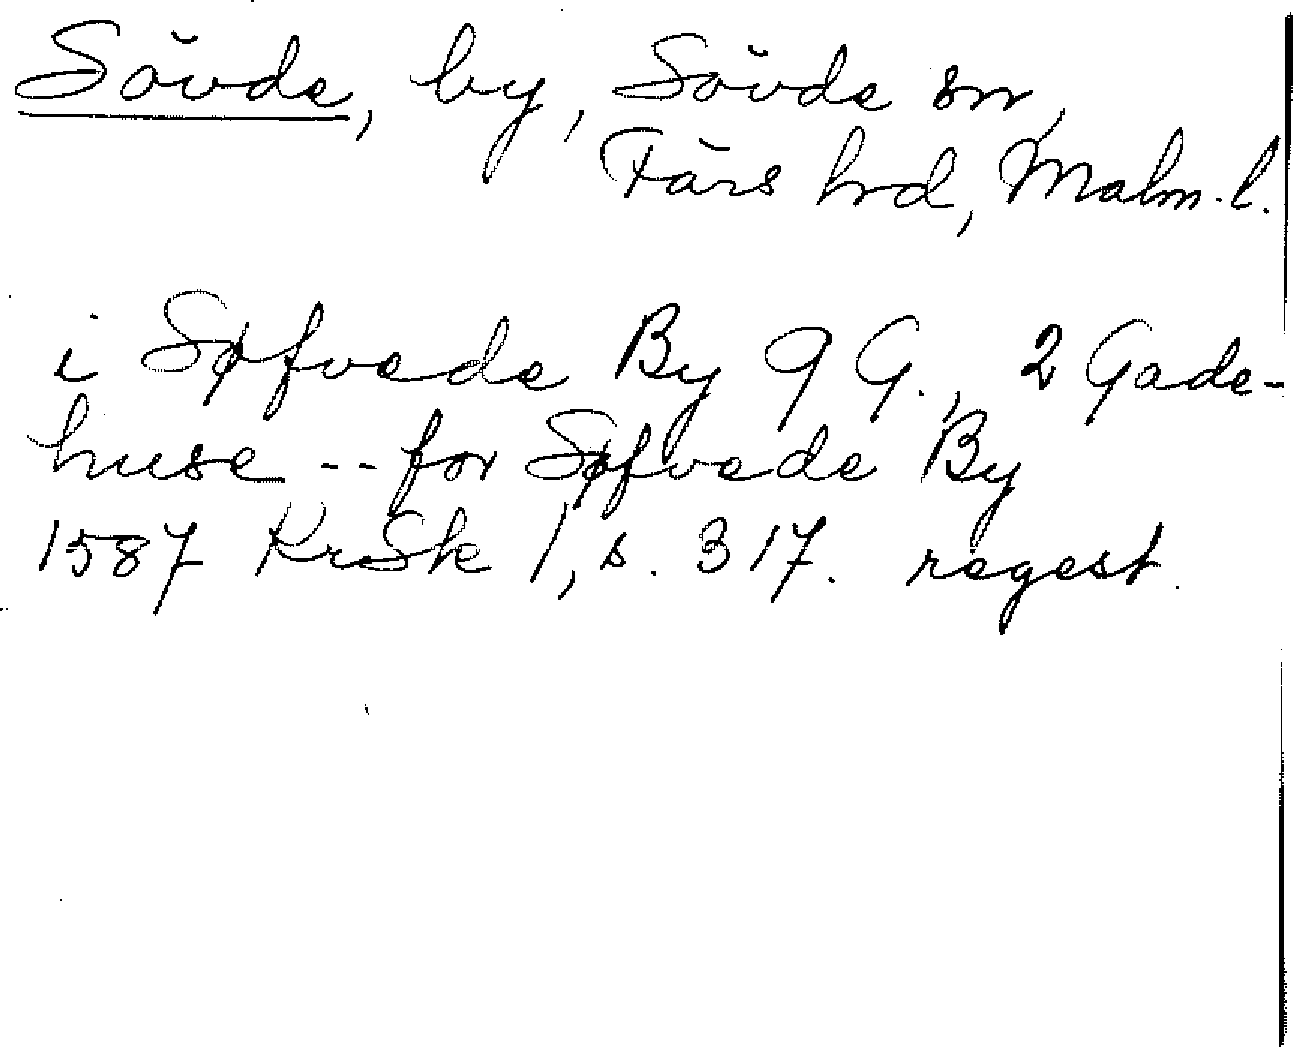 Sövde, by, Sövde sn,
Färs hrd, Malm. l.
i Søfvede By 9 G., 2 Gade-
huse -- for Søfvede By
1587 KrSk 1, s. 317. regest.